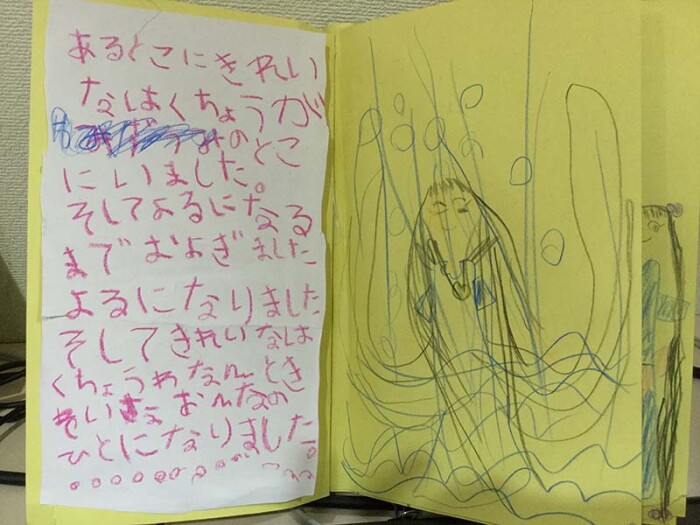 あるとこにきれい
なはくちょうが
のとこ
にいました。
そしてよるになる
までおよぎました
よるになりました
そしてきれいなは
くちょうわなんとき
おんなの
ひとになりました。